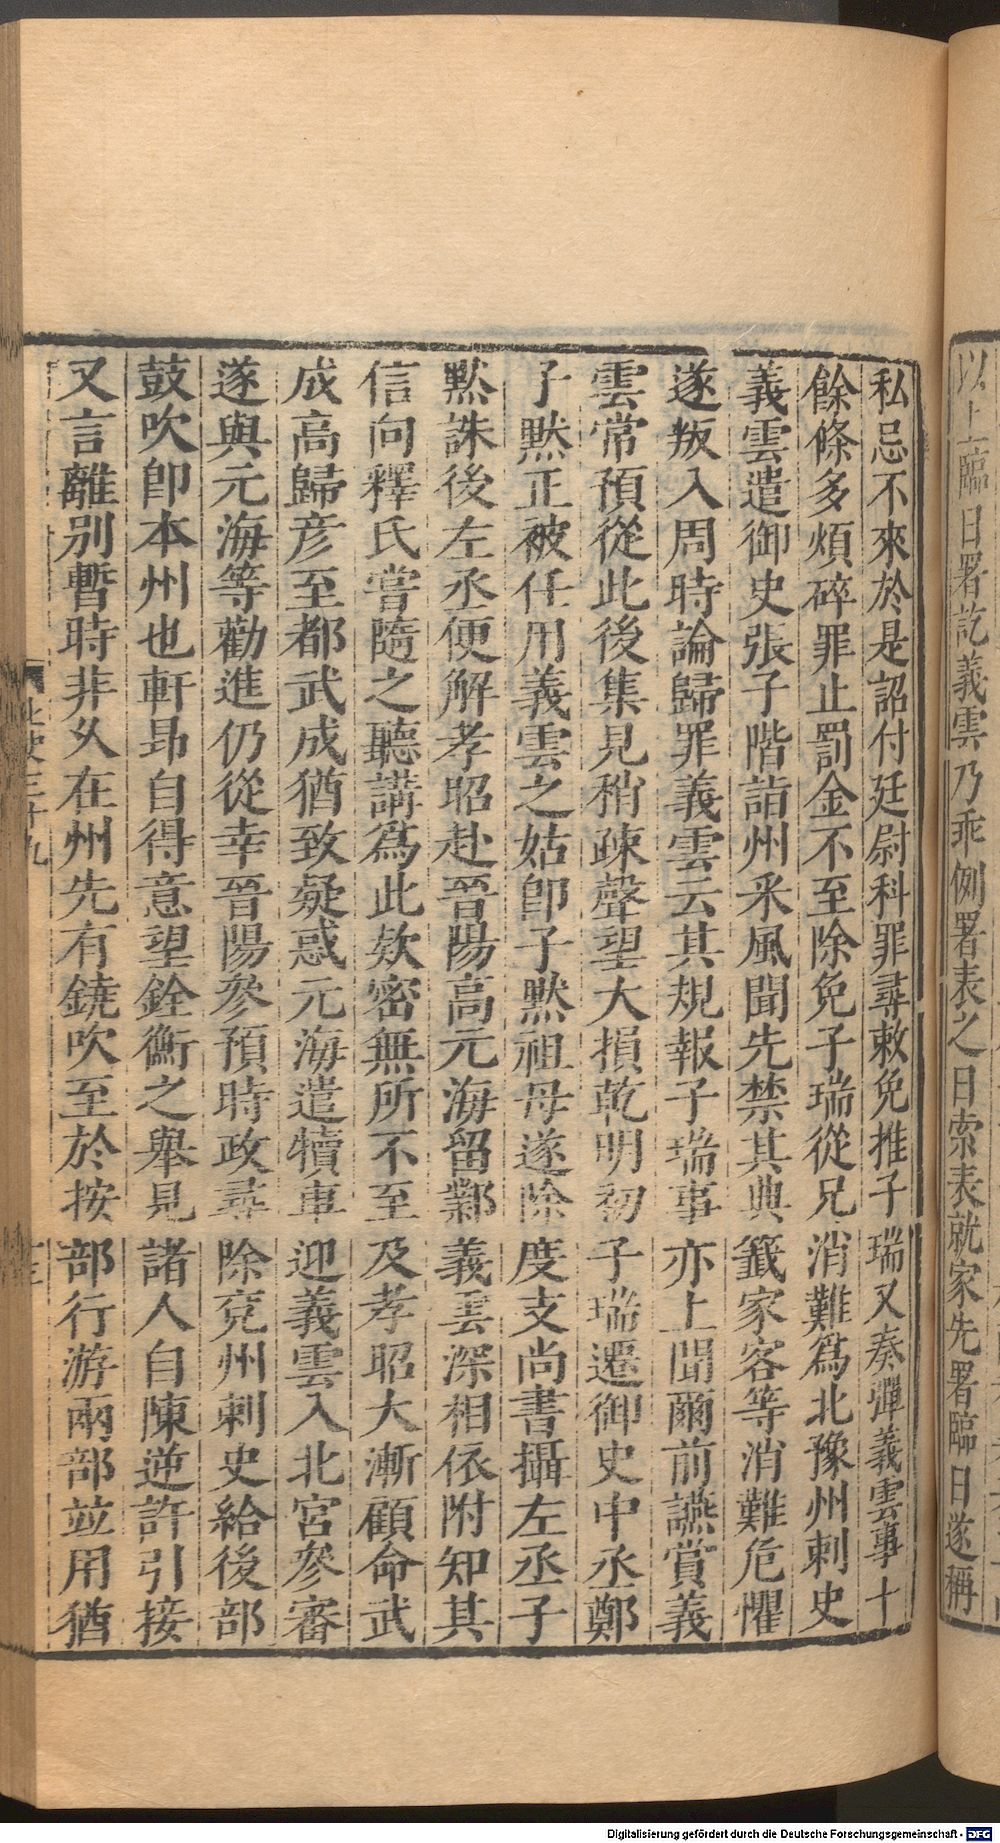 以上臨日署訖義雲乃乖例署表之日索表就家先署臨日遂稱
私忌不來於是詔付廷尉科罪尋敕免推子瑞又奏彈義雲事十
餘條多煩碎罪止罰金不至除免子瑞從兄消難爲北豫州刺史
義雲遣御史張子階詣州采風聞先禁其典籤家客等消難危懼
遂叛入周時論歸罪義雲云其規報子瑞事亦上聞爾前讌賞義
雲常預從此後集見稍疎聲望大損乾明初子瑞遷御史中丞鄭
子默正被任用義雲之姑卽子默祖母遂除度支尚書攝左丞子
默誅後左丞便解孝昭赴晉陽高元海留鄴義雲深相依附知其
信向釋氏嘗隨之聽講爲此欵密無所不至及孝昭大漸顧命武
成高歸彥至都武成猶致疑惑元海遣犢車迎義雲入北宮參審
遂與元海等勸進仍從幸晉陽參預時政尋除兗州刺史給後部
鼓吹卽本州也軒昂自得意望銓衡之舉見諸人自陳逆許引接
又言離別暫時非久在州先有鐃吹至於按部行游兩部竝用猶
北史三十九
Digitalisierung gefördert durch die Deutsche Forschungsgemeinschaft - DFG